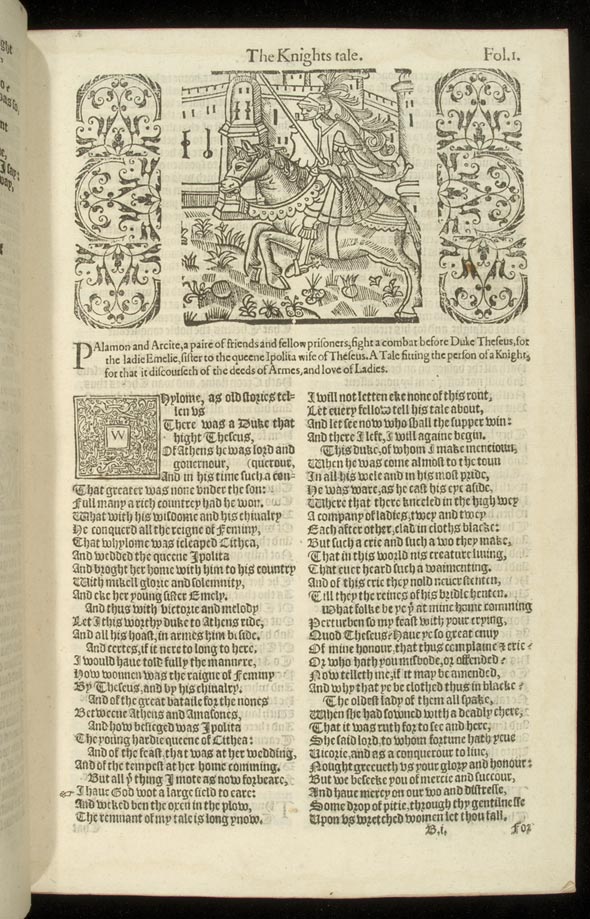 The Knights tale.
Fol.1.
PAlamon and Arcite, a paire of friends and fellow prisoners, fight a combat before Duke Theseus, for
the ladie Emelie, sister to the queene Ipolita wife of Theseus. A Tale fitting the person of a Knight,
for that it discourseth of the deeds of Armes, and love of Ladies.
WHylome, as old stories tel-
len vs
There was a Duke that
hight Theseus,
Of Athens he was lord and
gouernour, (querour,
And in his time such a con-
That greater was none vnder the son:
Full many a rich countrey had he won.
What with his wisdome and his chiualry
He conquerd all the reigne of Feminy,
That whylome was icleaped Cithea,
And wedded the queene Ipolita
And broght her home with him to his country
With mikell glorie and solemnity,
And eke her young sister Emely.
And thus with victorie and melody
Let I this worthy duke to Athens ride,
And all his hoast, in armes him beside.
And certes, if it nere to long to here,
I would haue told fully the mannere,
How wonnen was the raigne of Feminy
By Theseus, and by his chiualry.
And of the great bataile for the nones
Betweene Athens and Amasones,
And how besieged was Ipolita
The young hardie queene of Cithea:
And of the feast, that was at her wedding,
And of the tempest at her home comming.
But all ẏ thing J mote as now forbeare,
☞ J haue God wot a large field to eare:
And weked ben the oxen in the plow,
The remnant of my tale is long ynow.
I will not letten eke none of this rout,
Let euery fellow tell his tale about,
And let see now who shall the supper win:
And there J left, J will againe begin.
This duke, of whom J make mencioun,
When he was come almost to the toun
In all his wele and in his most pride,
He was ware, as he cast his eye aside,
Where that there kneeled in the high wey
A company of ladies, twey and twey
Each after other, clad in cloths blacke:
But such a crie and such a wo they make,
That in this world nis creature liuing,
That euer heard such a waimenting.
And of this crie they nold neuer stenten,
Till they the reines of his bridle henten.
What folke be ye ẏ at mine home comming
Perturben so my feast with your crying,
Quod Theseus? Haue ye so great enuy
Of mine honour, that thus complaine & crie?
Or who hath you misbode, or offended?
Now telleth me, if it may be amended,
And why that ye be clothed thus in blacke?
The oldest lady of them all spake,
When she had sowned with a deadly chere,
That it was ruth for to see and here,
She said lord, to whom fortune hath yeue
Victorie, and as a conquerour to liue,
Nought greeueth vs your glory and honour:
But we beseeke you of mercie and succour,
And haue mercy on our wo and distresse,
Some drop of pitie, through thy gentilnesse
Upon vs wretched women let thou fall.
B.i.
For